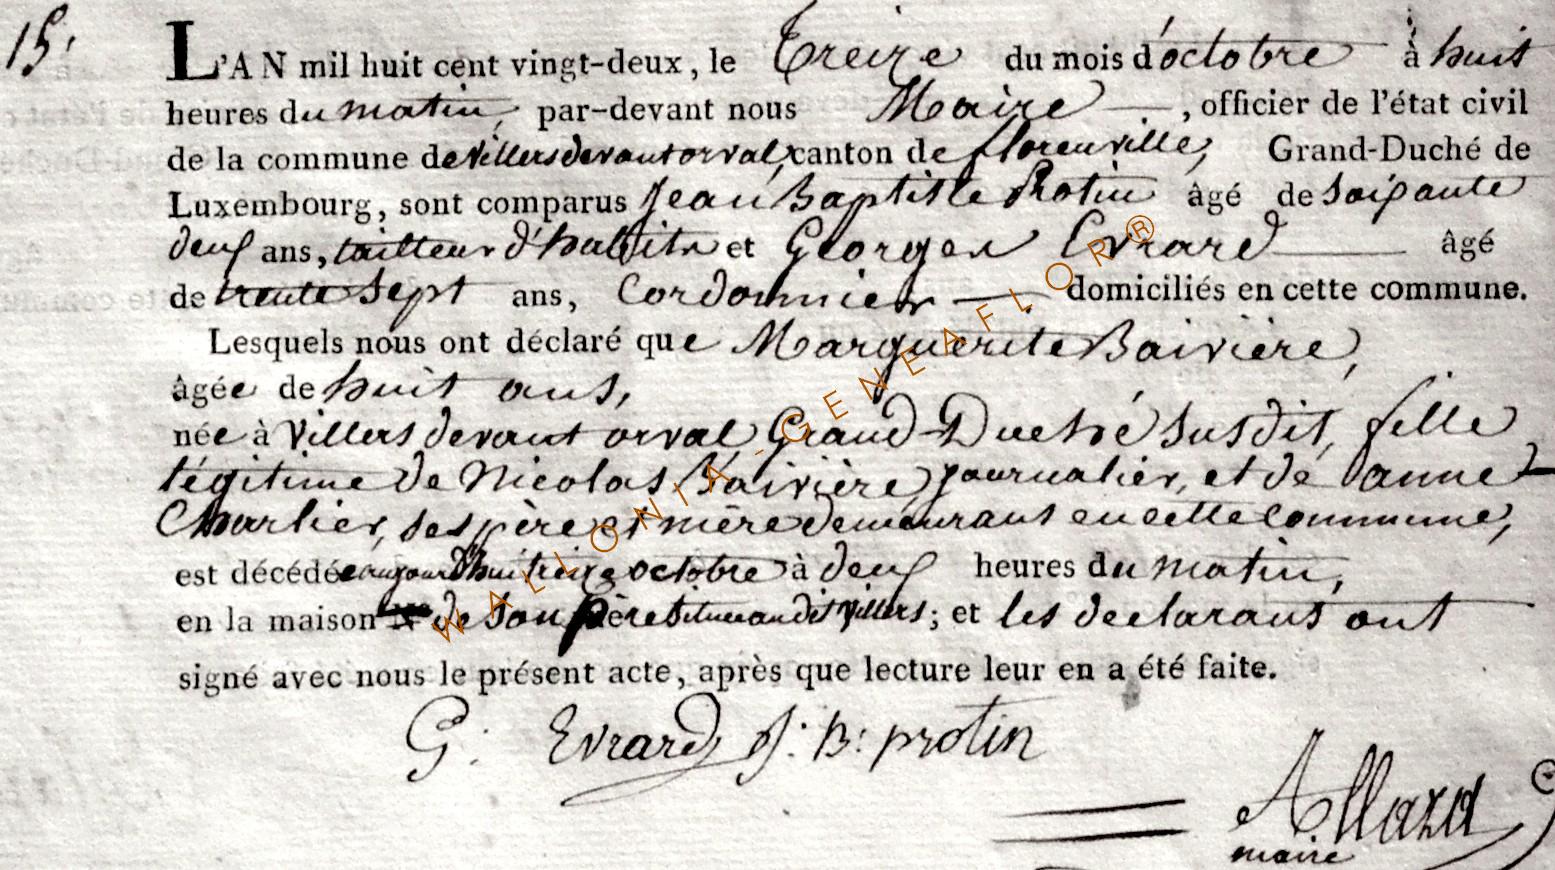 15.
L'AN mil huit cent vingt-deux, le Treize du mois d'octobre à huit
heures du matin, par-devant nous Maire, officier de l'état civil
de la commune de villers devant orval, canton de florenville, Grand-Duché de
Luxembourg, sont comparus Jean Baptiste Protin âgé de soixante
deux ans, tailleur d'habits et Georges Evrard âgé
de trente sept ans, Cordonnier domiciliés en cette commune.
Lesquels nous ont déclaré que Marguerite Baivière,
âgée de huit ans,
née à Villers devant orval Grand-Duché susdit, fille
légitime de Nicolas Baivière, journalier, et de anne
Charlier, ses père et mère demeurant en cette commune,
est décédée aujourd'hui treize octobre à deux heures du matin,
en la maison de son père située audit villers; et les declarans ont
signé avec nous le présent acte, après que lecture leur en a été faite.
G: Evrard J: B: protin
Allard
maire
WALLONIA-GENEAFLOR®